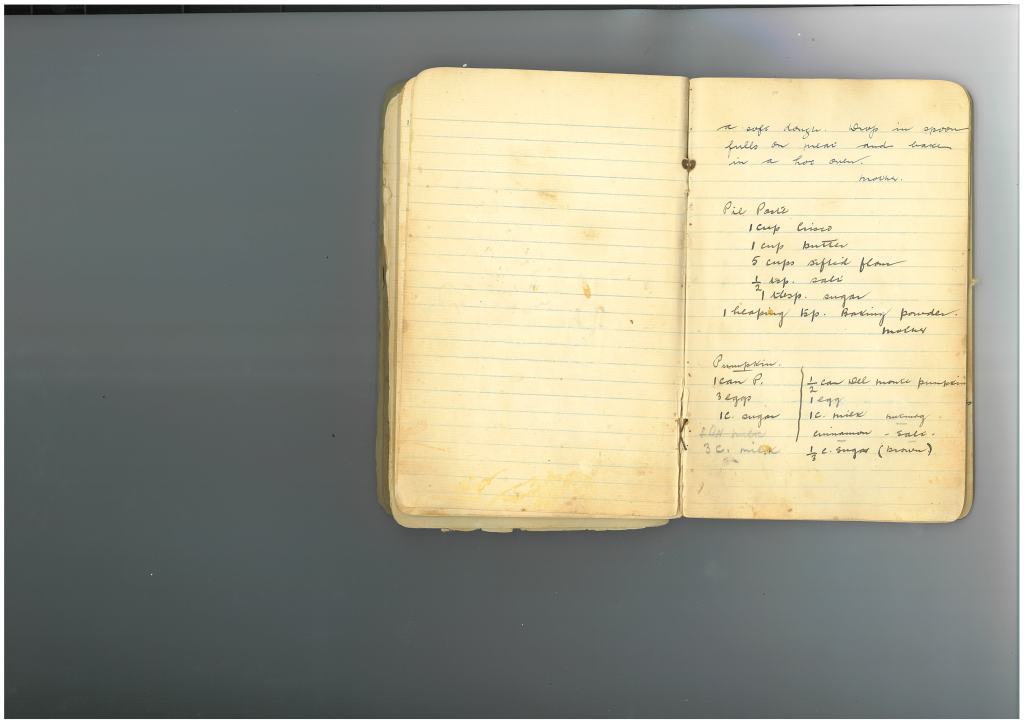 a soft dough. Drop in spoon
fulls on meat and bake
in a hot oven.
Mother.
Pie Paste
1 cup Crisco
1 cup butter
5 cups sifted flour
1/2 tsp. salt
1 tbsp. sugar
1 heaping tsp. Baking powder.
Mother
Pumpkin.
1 can P.
3 eggs
1 c. sugar
milk
3 c. milk
1/2 can Del Monte pumpkin
1 egg
1 c. milk nutmeg
cinnamon - salt.
1/3 c. sugar (brown)